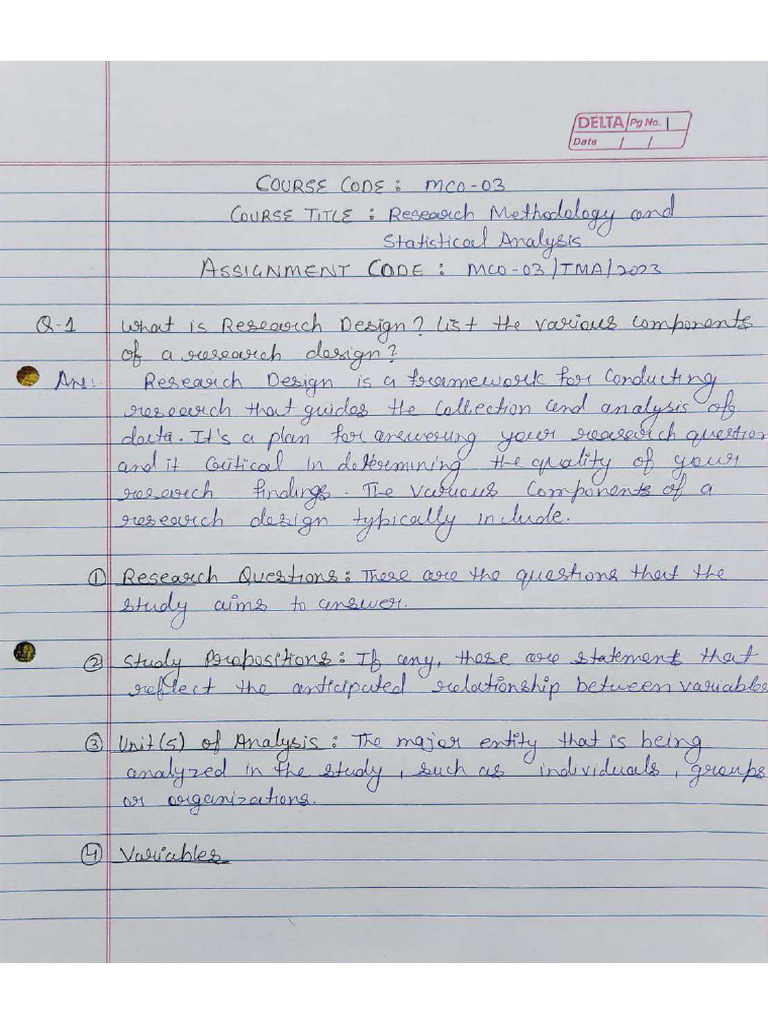 DELTA Pg No. 1
Date / /
COURSE CODE : MCO-03
COURSE TITLE : Research Methodology and
Statistical Analysis
ASSIGNMENT CODE : MCO-03/TMA/2023
Q-1 What is Research Design? List the various components
of a research design?
Ans:- Research Design is a framework for conducting
research that guides the collection and analysis of
data. It's a plan for answering your research question
and it critical in determining the quality of your
research findings. The various components of a
research design typically include.
① Research Questions: These are the questions that the
study aims to answer.
② Study Propositions: If any, these are statements that
reflect the anticipated relationship between variables
③ Unit(s) of Analysis: The major entity that is being
analyzed in the study, such as individuals, groups
or organizations.
④ Variables